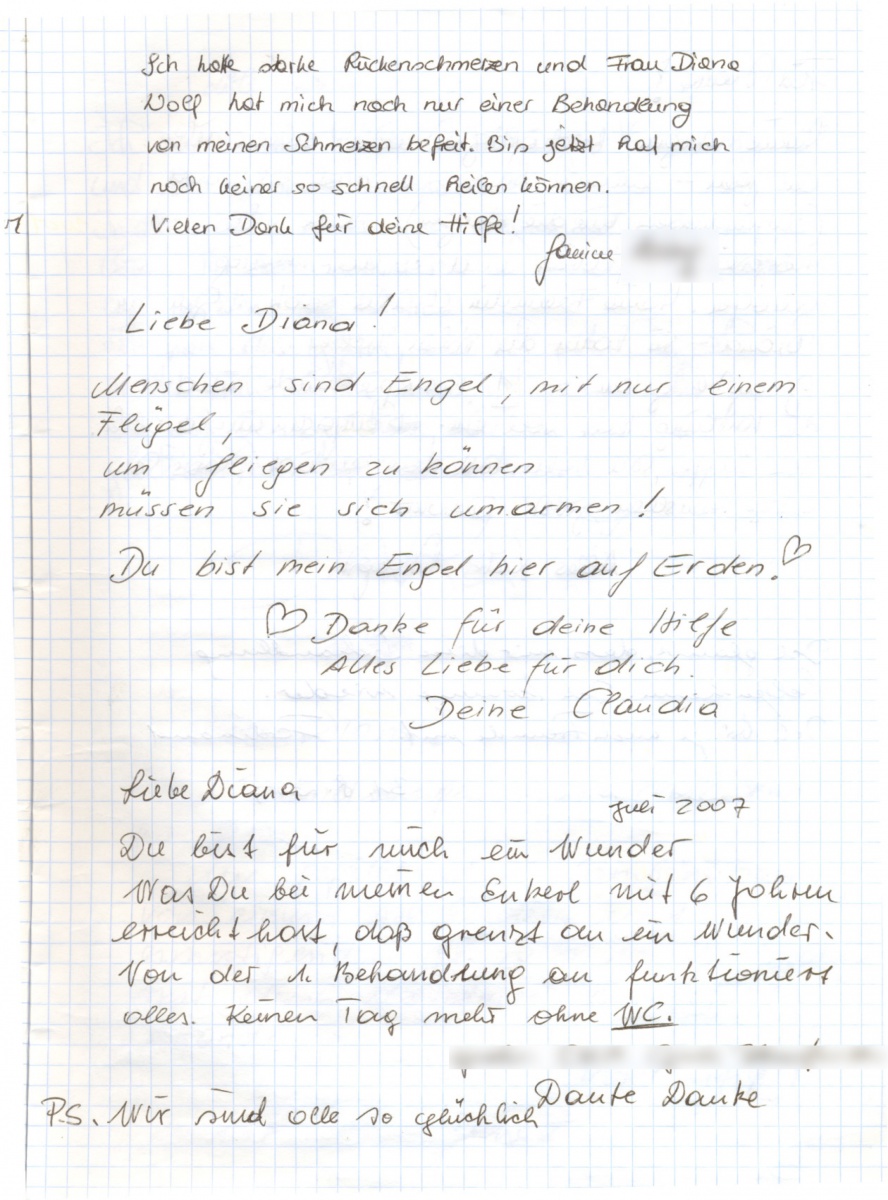 Ich hatte starke Rückenschmerzen und Frau Diana
Wolf hat mich nach nur einer Behandlung
von meinen Schmerzen befreit. Bis jetzt hat mich
noch keiner so schnell heilen können.
Vielen Dank für deine Hilfe!
Janine
1
Liebe Diana!
Menschen sind Engel, mit nur einem
Flügel,
um fliegen zu können
müssen sie sich umarmen!
Du bist mein Engel hier auf Erden! ♡
♡ Danke für deine Hilfe
Alles Liebe für dich.
Deine Claudia
Liebe Diana
Juli 2007
Du bist für mich ein Wunder
Was Du bei meinen Enkerl mit 6 Jahren
erreicht hast, daß grenzt an ein Wunder.
Von der 1. Behandlung an funktioniert
alles. Keinen Tag mehr ohne WC.
Danke Danke
P.S. Wir sind alle so glücklich